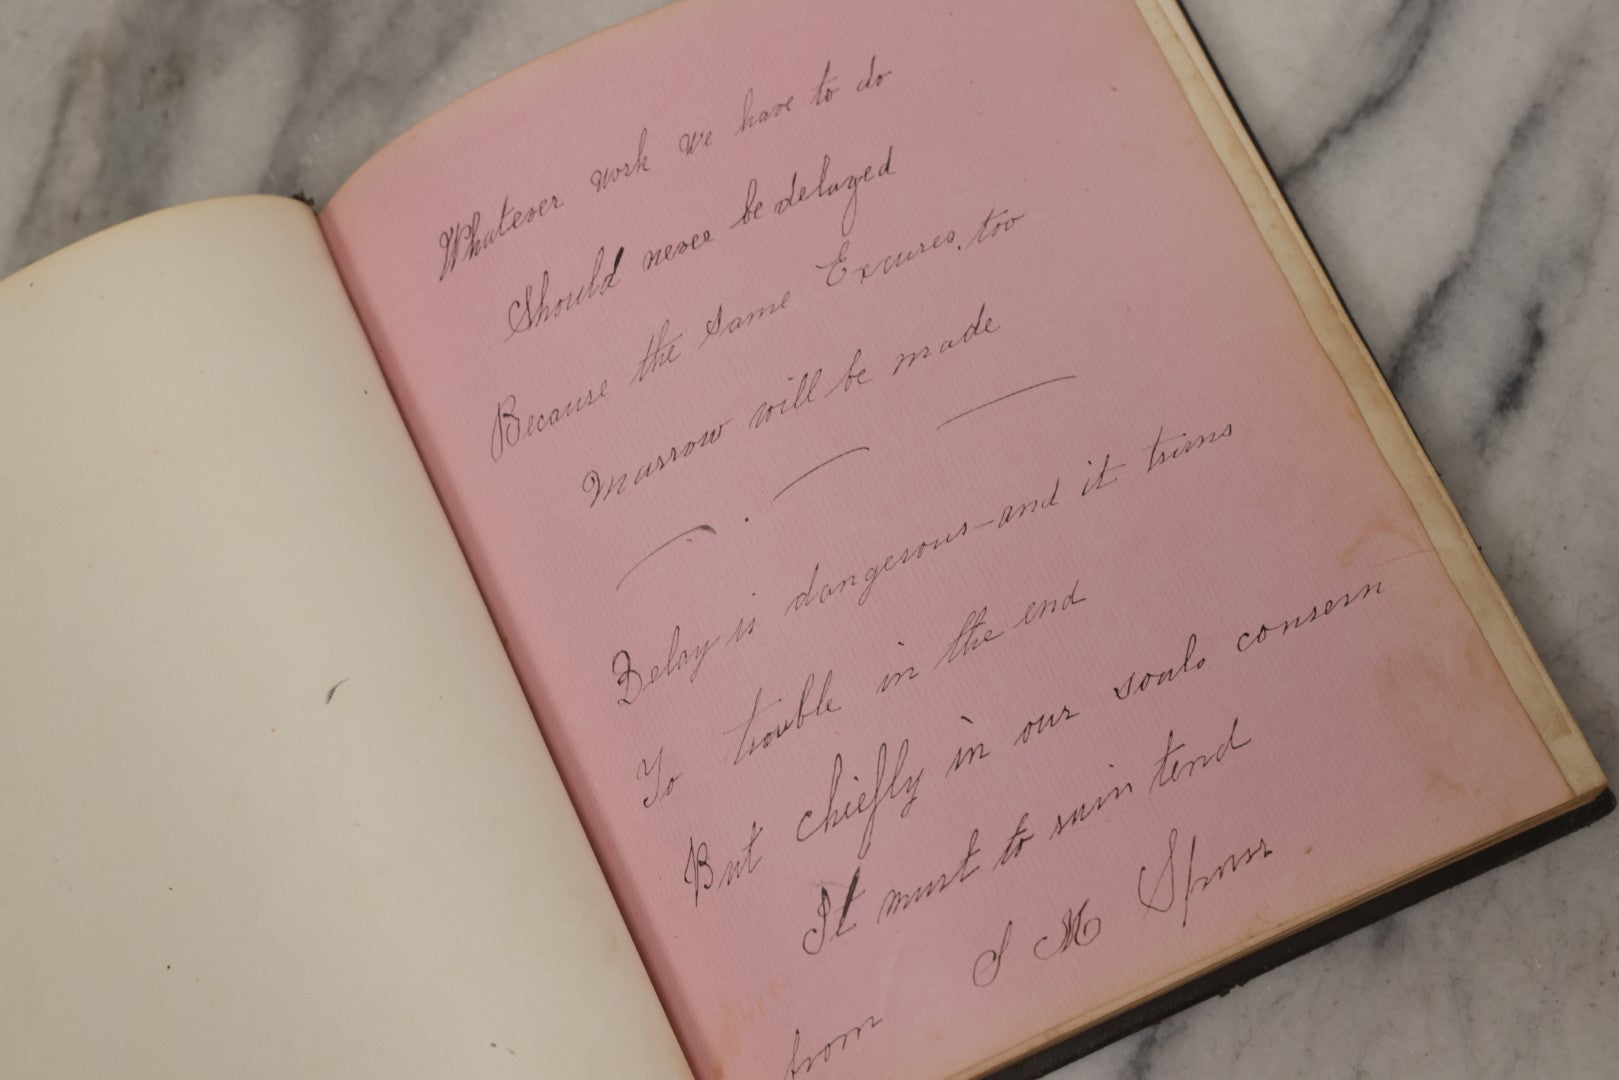 Whatever work we have to do
Should never be delayed
Because the same Excuses, too
Morrow will be made
Delay is dangerous—and it trims
To trouble in the end
But chiefly in our souls consern
It must to ruin tend
S M
from